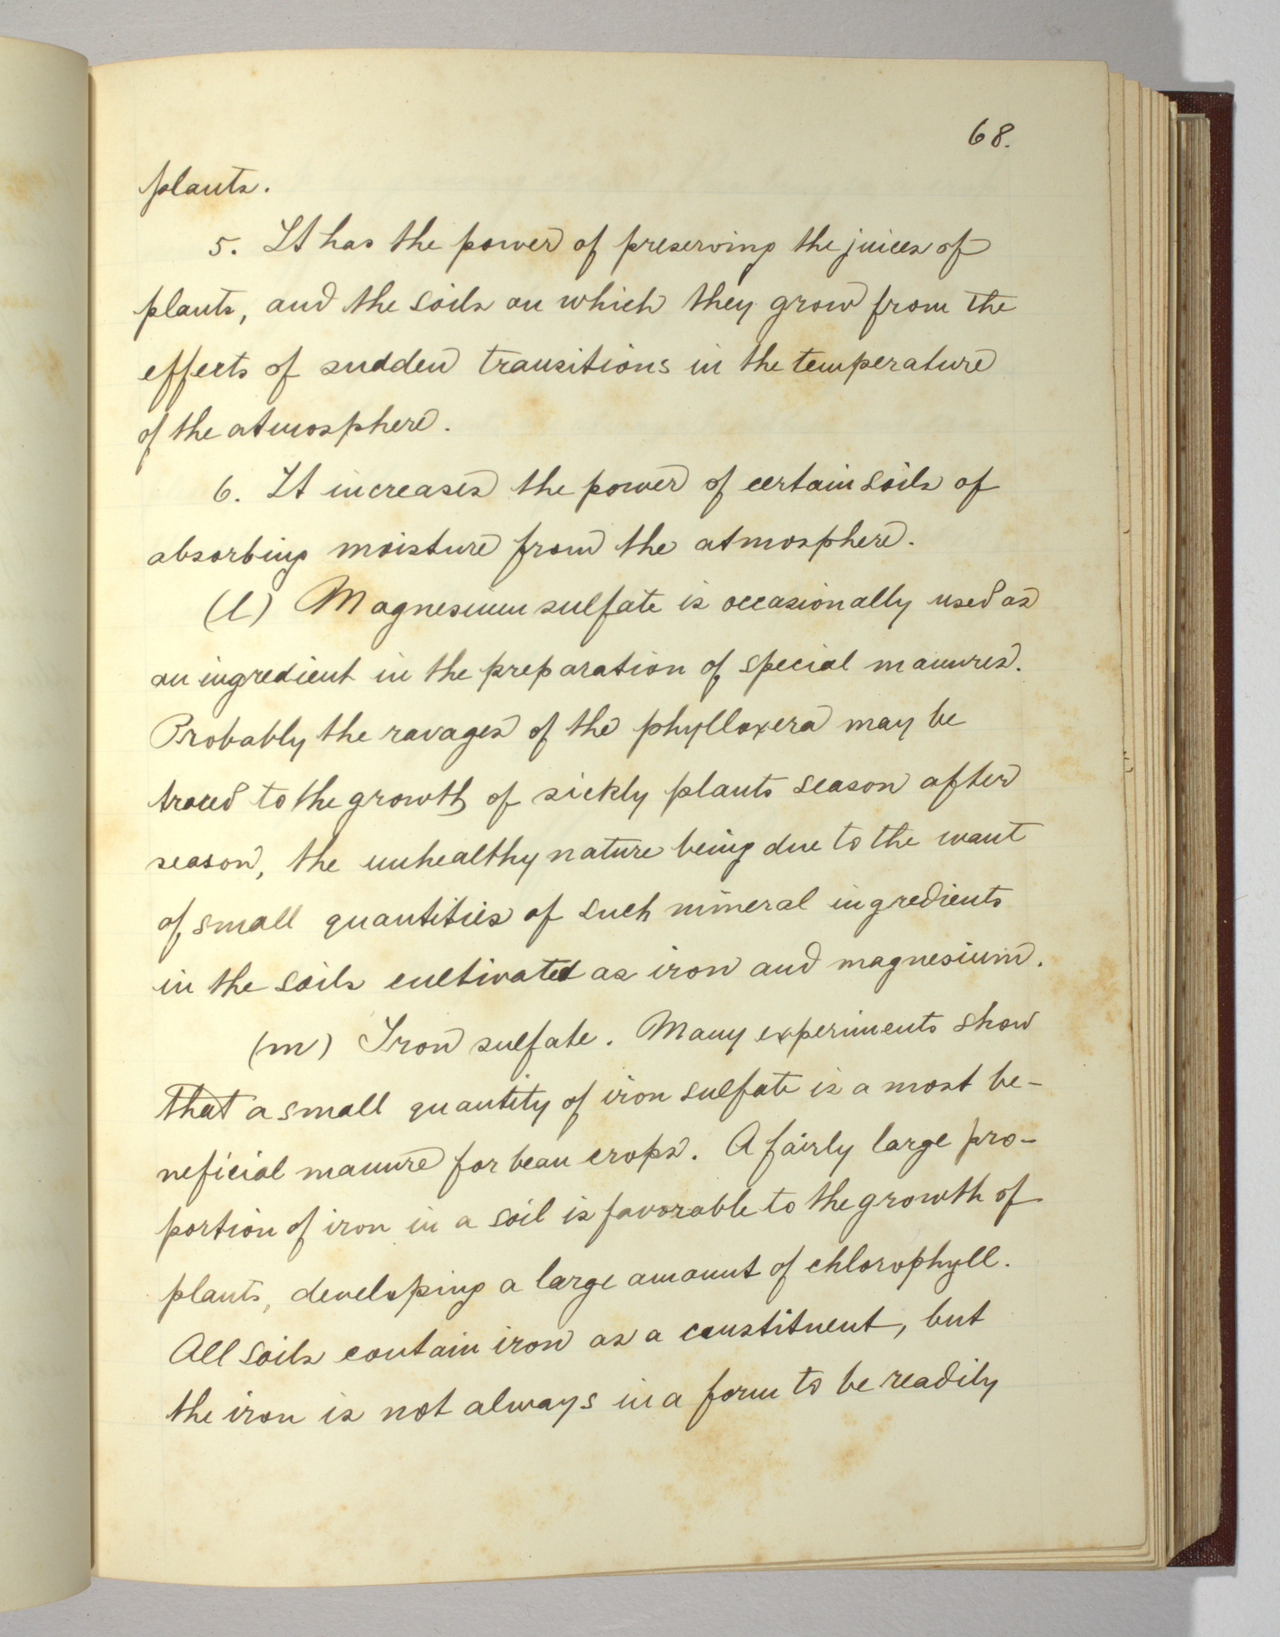 68.
plants.
5. It has the power of preserving the juices of
plants, and the soils on which they grow from the
effects of sudden transitions in the temperature
of the atmosphere.
6. It increases the power of certain soils of
absorbing moisture from the atmosphere.
(l) Magnesium sulfate is occasionally used as
an ingredient in the preparation of special manures.
Probably the ravages of the phylloxera may be
traced to the growth of sickly plants season after
season, the unhealthy nature being due to the want
of small quantities of such mineral ingredients
in the soils cultivated as iron and magnesium.
(m) Iron sulfate. Many experiments show
that a small quantity of iron sulfate is a most be-
neficial manure for bean crops. A fairly large pro-
portion of iron in a soil is favorable to the growth of
plants, developing a large amount of chlorophyll.
All soils contain iron as a constituent, but
the iron is not always in a form to be readily